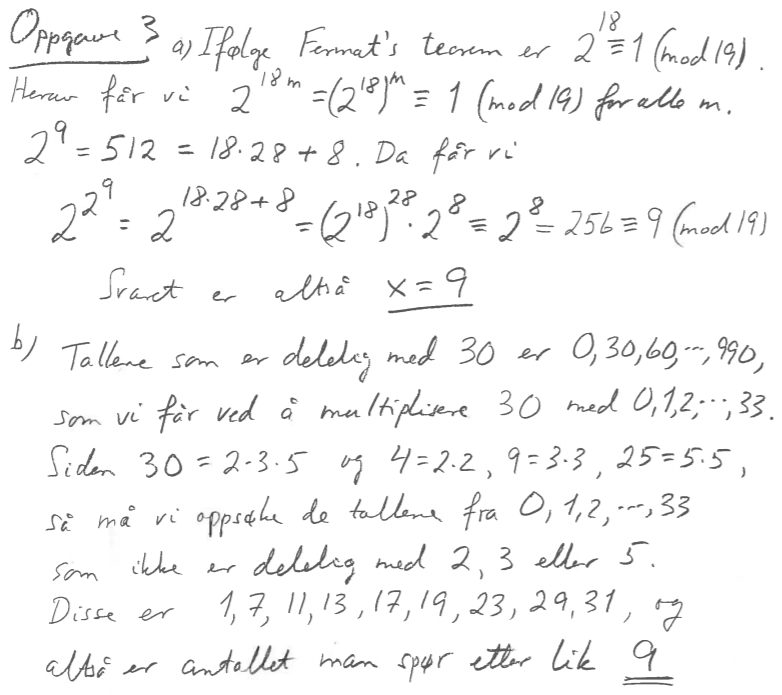 Oppgave 3 a) Ifølge Fermat's teorem er 2^18 ≡ 1 (mod 19).
Herav får vi 2^18m = (2^18)^m ≡ 1 (mod 19) for alle m.
2^9 = 512 = 18·28 + 8. Da får vi
2^2^9 = 2^18·28+8 = (2^18)^28 · 2^8 ≡ 2^8 = 256 ≡ 9 (mod 19)
Svaret er altså x = 9
b) Tallene som er delelig med 30 er 0, 30, 60, ..., 990,
som vi får ved å multiplisere 30 med 0, 1, 2, ..., 33.
Siden 30 = 2·3·5 og 4 = 2·2, 9 = 3·3, 25 = 5·5,
så må vi oppsøke de tallene fra 0, 1, 2, ..., 33
som ikke er delelig med 2, 3 eller 5.
Disse er 1, 7, 11, 13, 17, 19, 23, 29, 31, og
altså er antallet man spør etter lik 9